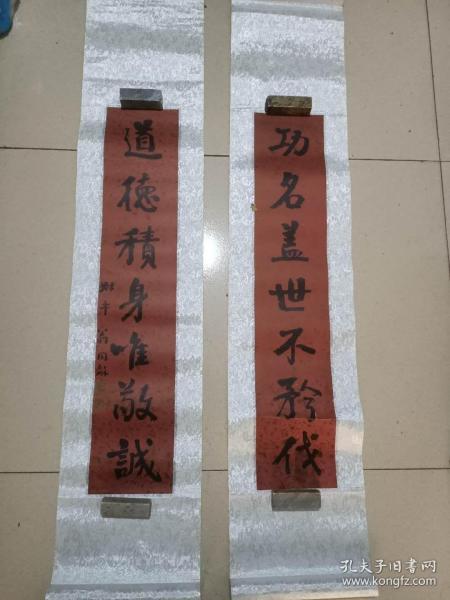 功名蓋世不矜伐
道德積身唯敬誠
翁同龢
孔夫子旧书网
www.kongfz.com